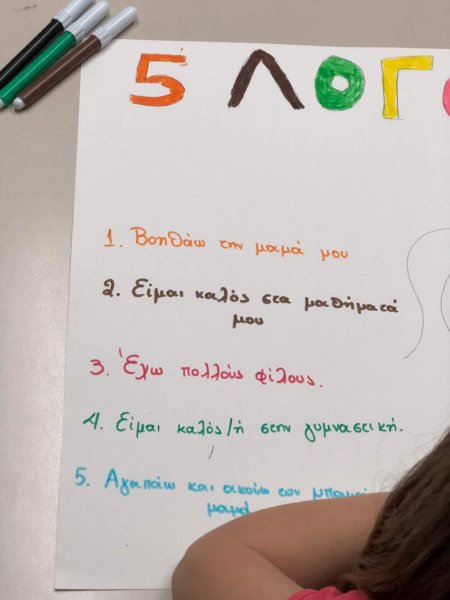 5 ΛΟΓ
1. Βοηθάω την μαμά μου
2. Είμαι καλός στα μαθήματά
μου
3. Έχω πολλούς φίλους.
4. Είμαι καλός/ή στην γυμναστική.
5. Αγαπάω και ακούω τον μπαμπά
μαμά